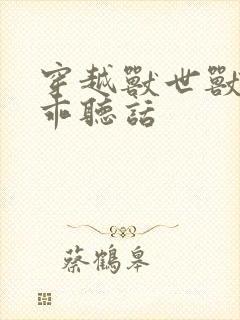 穿越獸世獸
乖聽話
蔡鶴皋